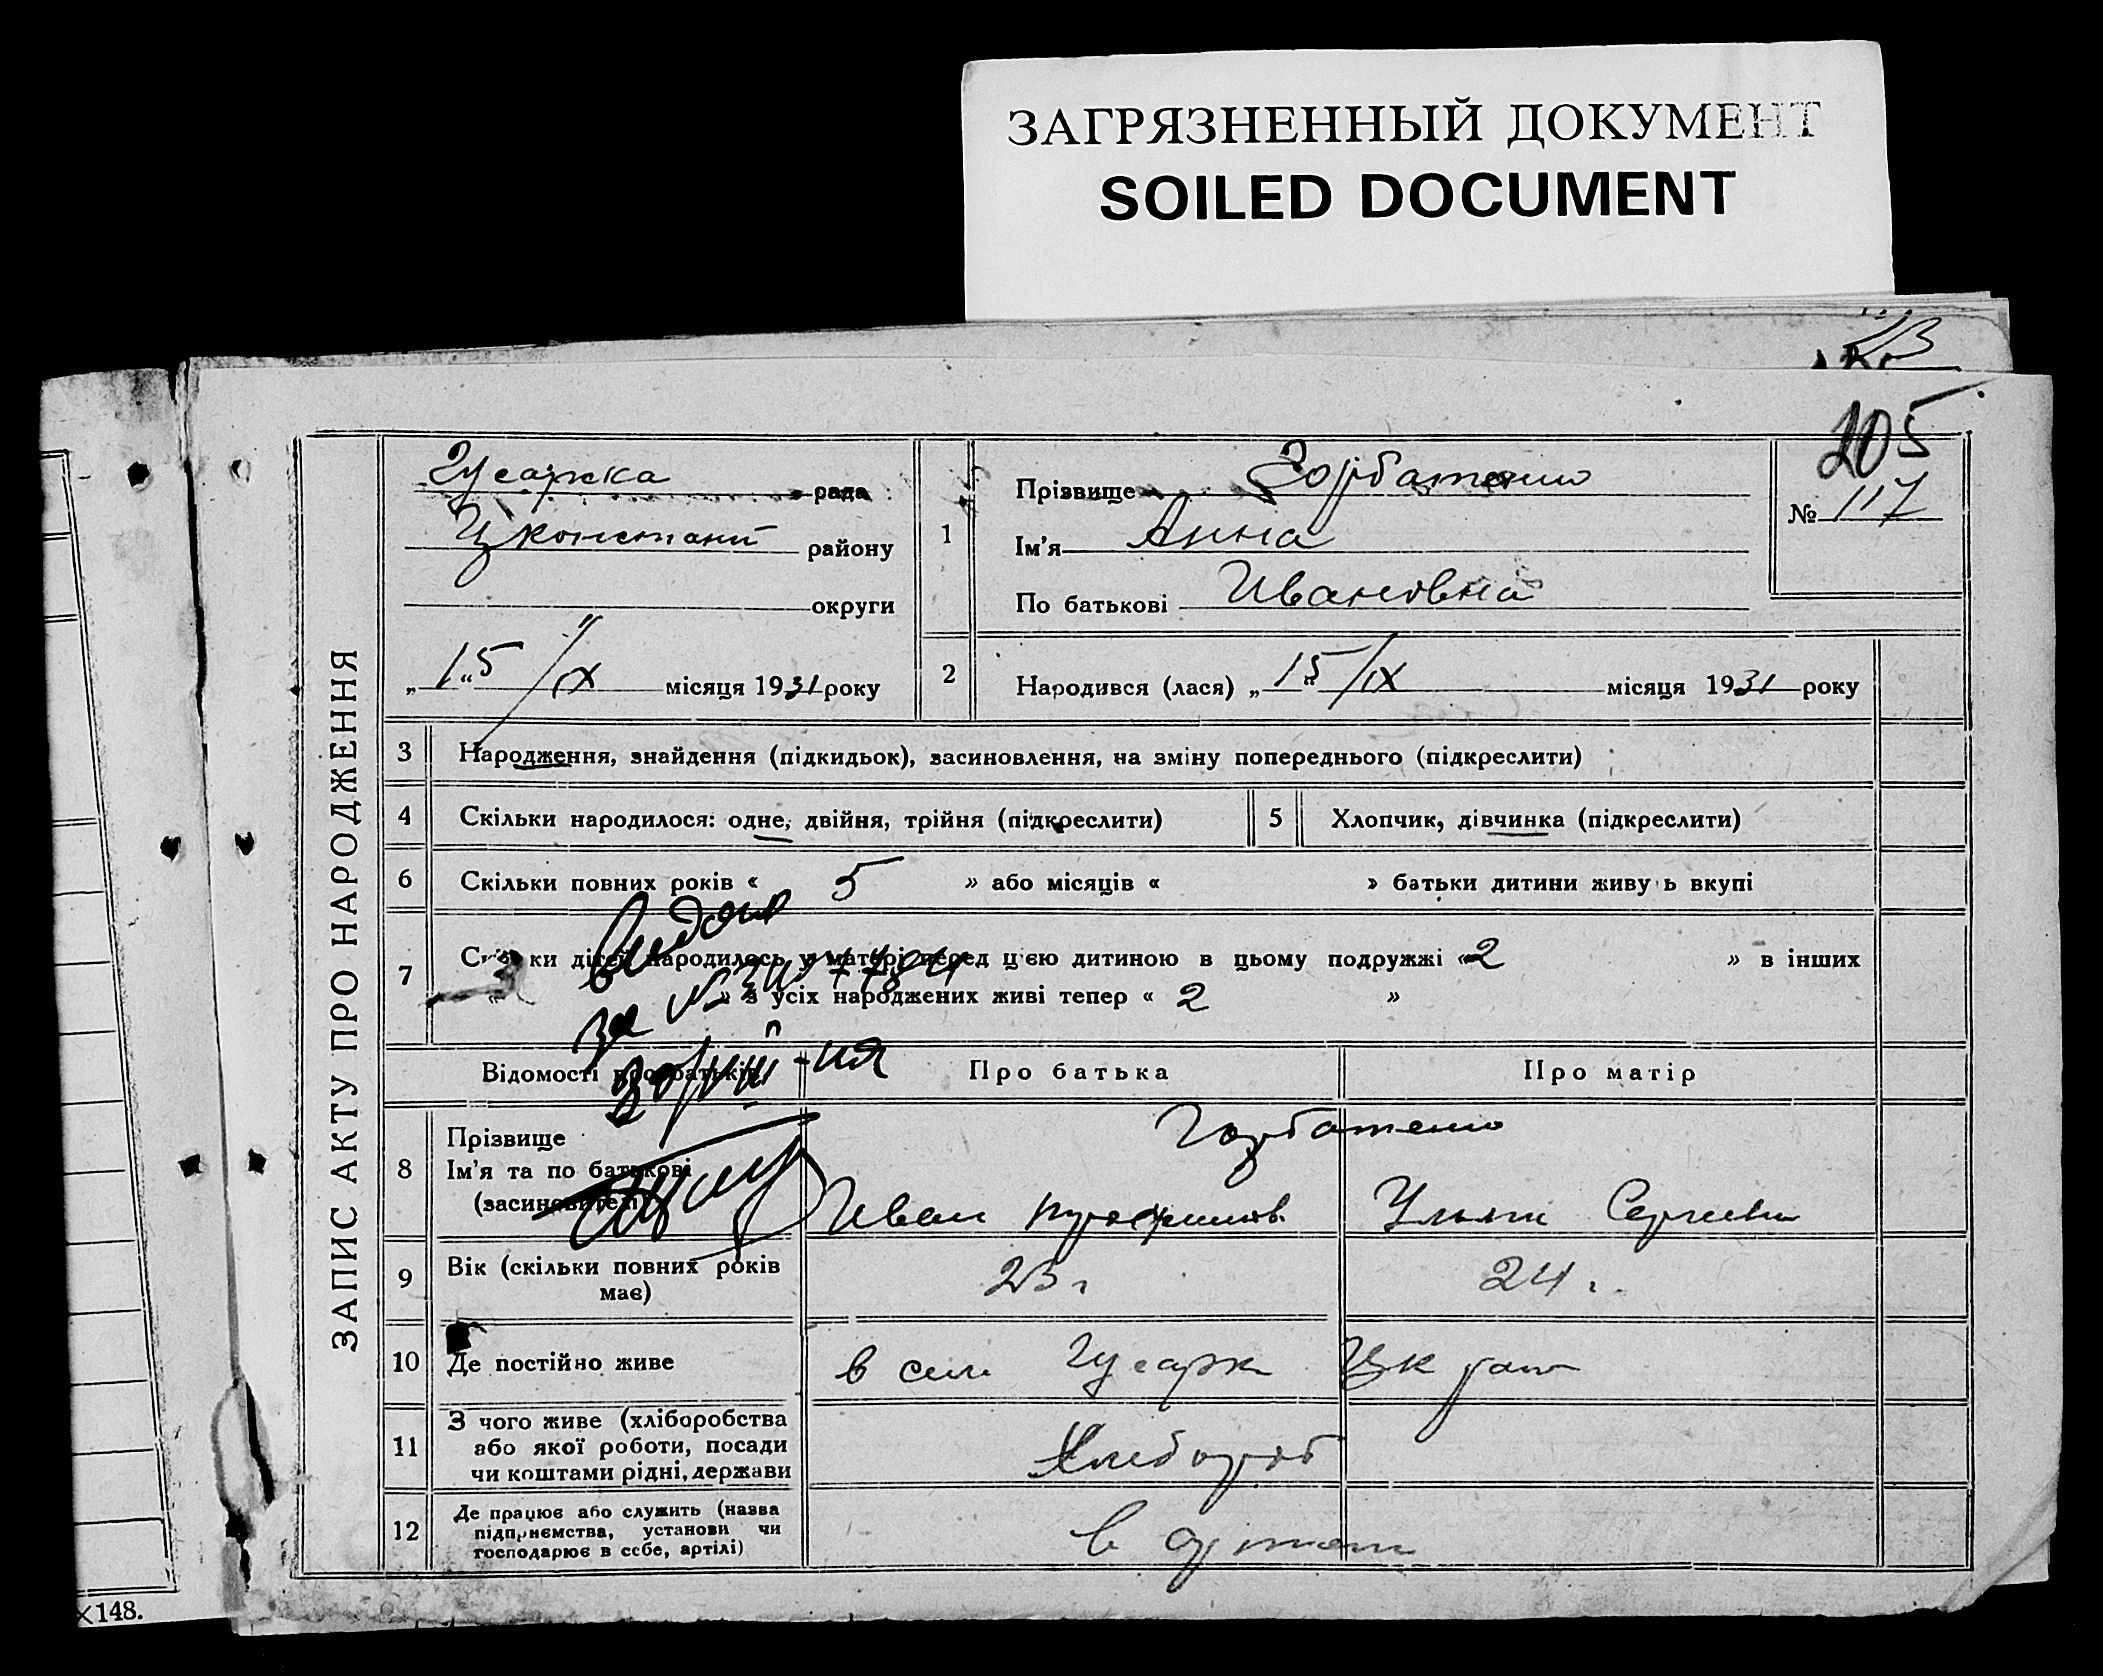 ЗАГРЯЗНЕННЫЙ ДОКУМЕНТ
SOILED DOCUMENT
205
№ 117
ЗАПИС АКТУ ПРО НАРОДЖЕННЯ
Гусарка рада
району
округи
„15“ /IX місяця 1931 року
1
Прізвище Горбатенко
Ім'я Анна
По батькові Ивановна
2 Народився (лася) „15“ /IX місяця 1931 року
3 Народження, знайдення (підкидьок), засиновлення, на зміну попереднього (підкреслити)
4 Скільки народилося: одне, двійня, трійня (підкреслити)
5 Хлопчик, дівчинка (підкреслити)
6 Скільки повних років « 5 » або місяців « » батьки дитини живуть вкупі
7 Скільки дітей народилось у матері перед цією дитиною в цьому подружжі « 2 » в інших
« » з усіх народжених живі тепер « 2 »
Відомості про батьків
Про батька
Про матір
8 Прізвище
Ім'я та по батькові
(засиновителі)
Горбатенко
Иван
Сергеевн
9 Вік (скільки повних років
має)
23 г
24 г.
10 Де постійно живе
в селі Гусарк
11 З чого живе (хліборобства
або якої роботи, посади
чи коштами рідні, держави
Хлебороб
12 Де працює або служить (назва
підприємства, установи чи
господарює в себе, артілі)
в
за №
148.